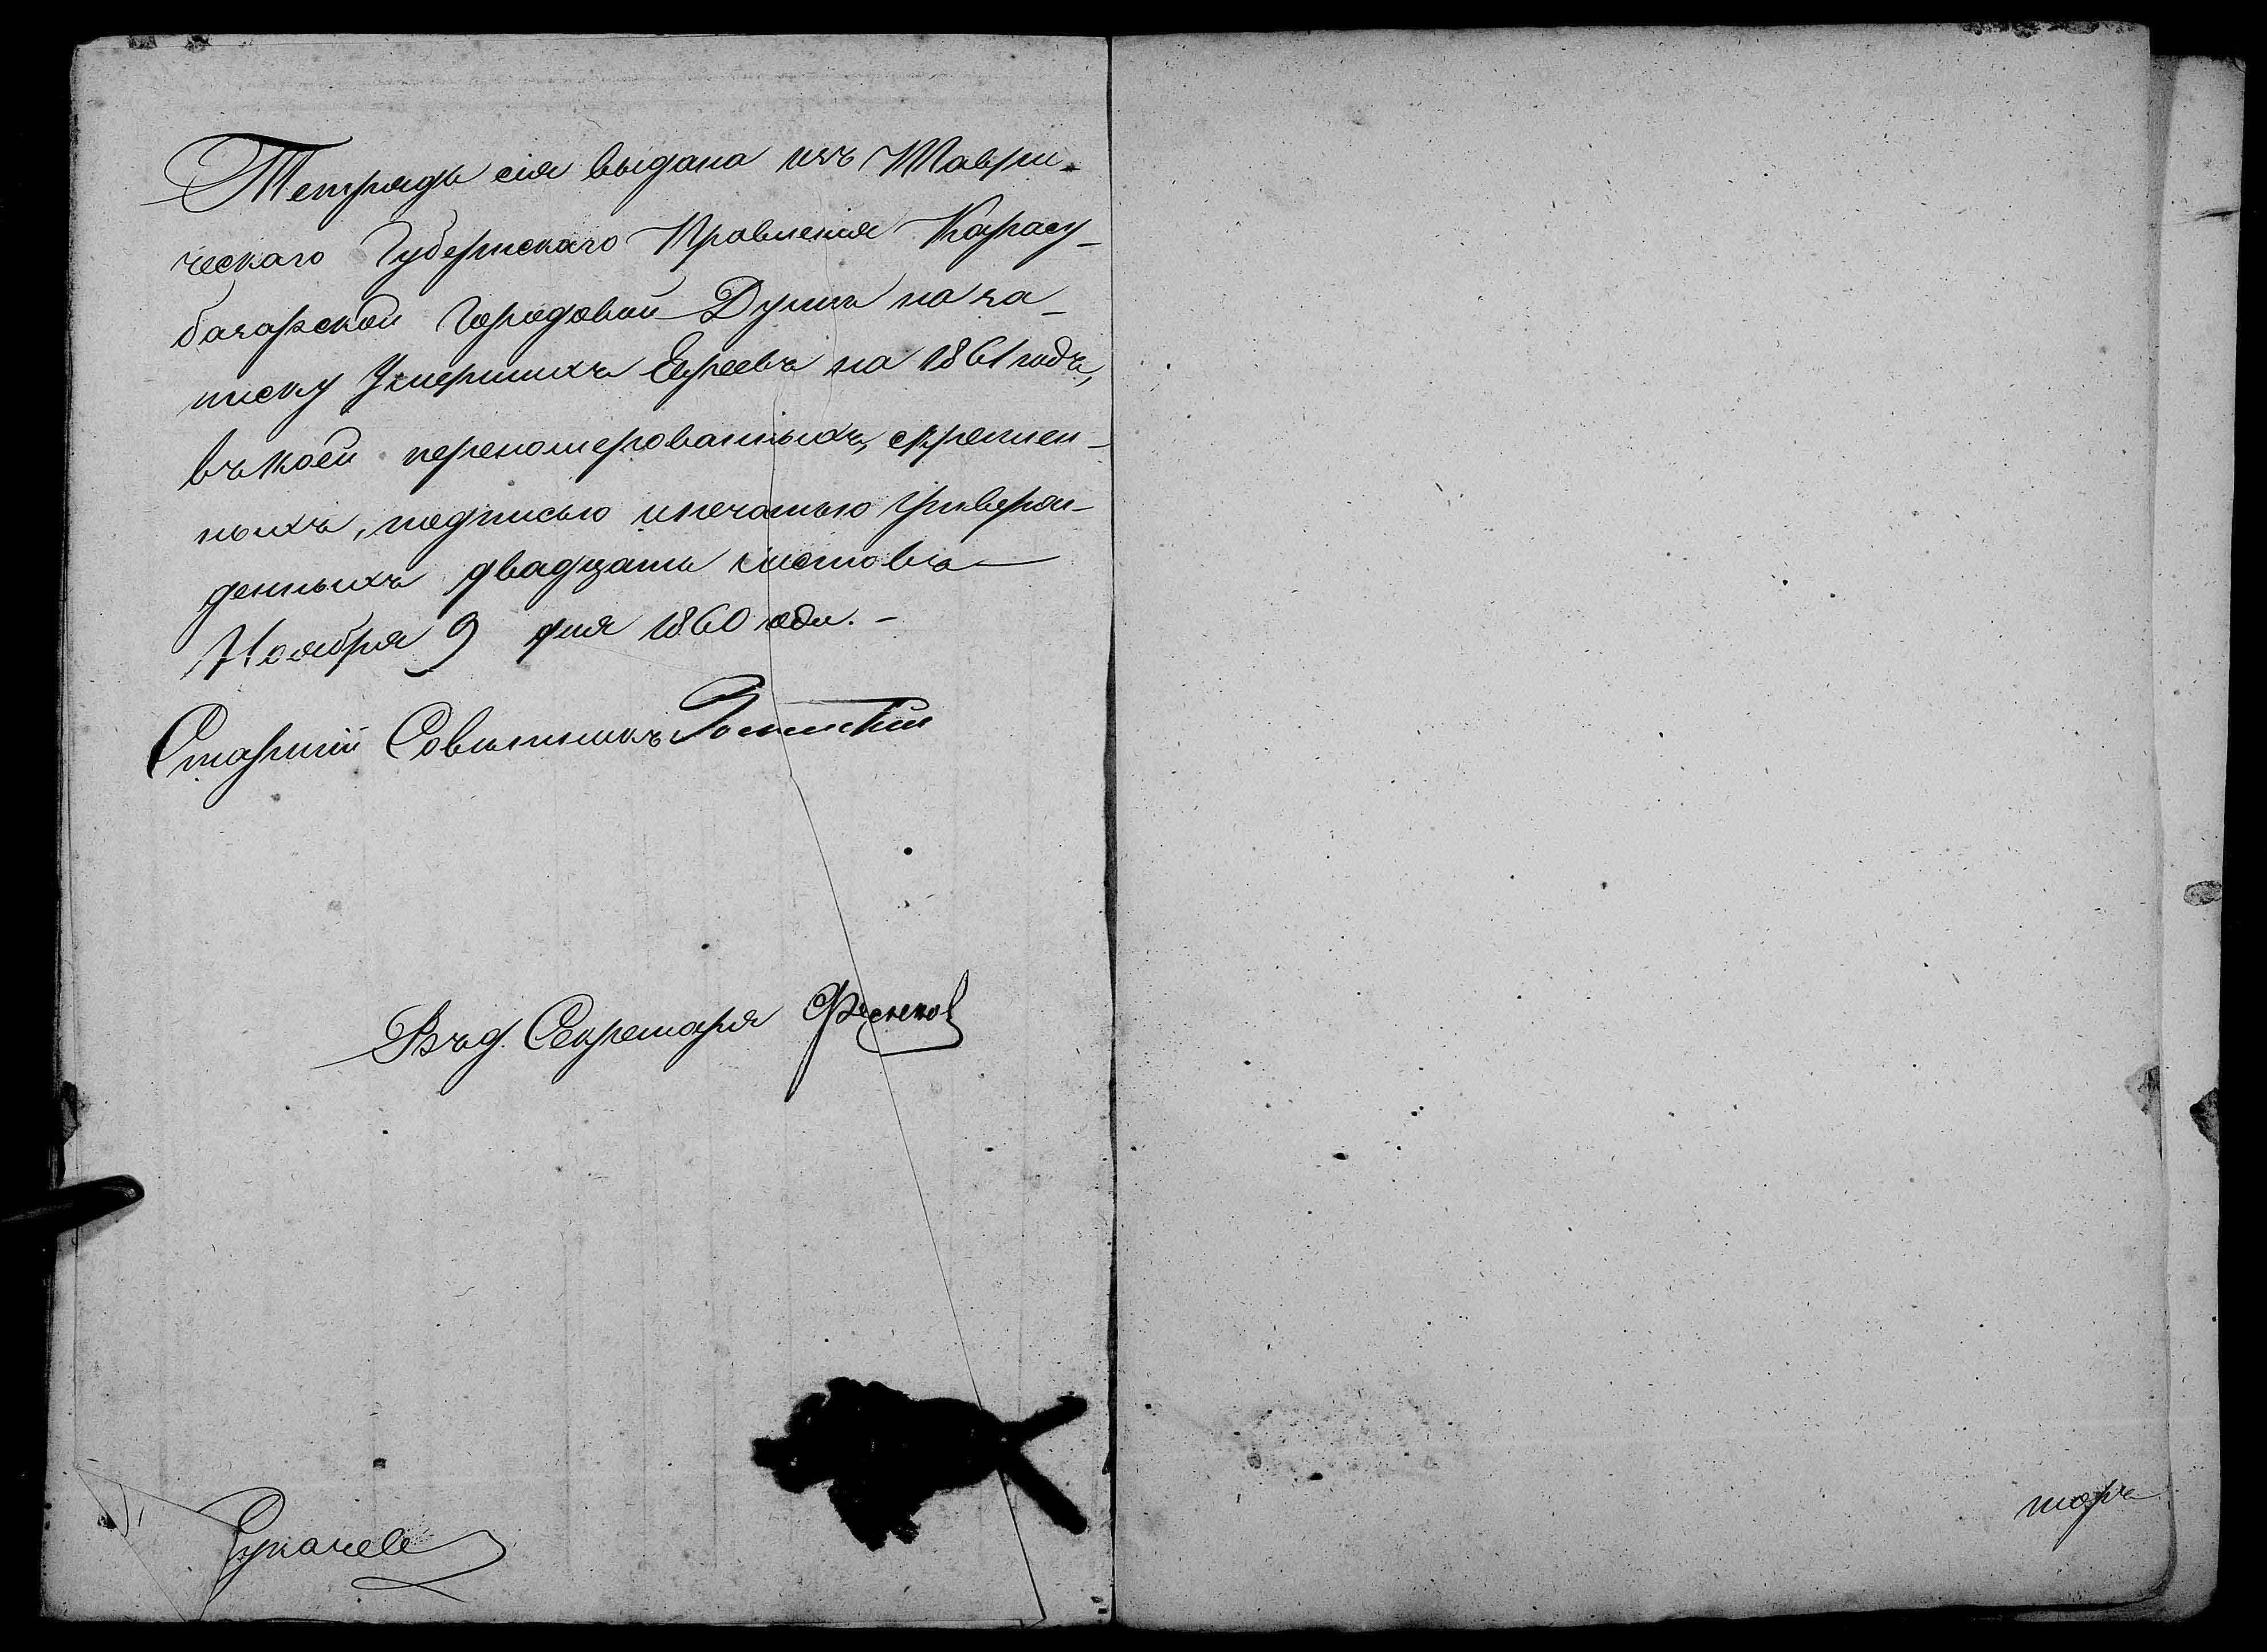 Тетрадь сія выдана изъ Таври-
ческаго Губернскаго Правленія Карасу-
базарской Городовой Думѣ на за-
писку Умершихъ Евреевъ на 1861 годъ,
въ коей перенумерованныхъ, скреплен-
ныхъ, подписью и печатью утверж-
денныхъ двадцать листовъ
Ноября 9 дня 1860 года. -
Старшій Совѣтникъ
Въ д. Секретаря